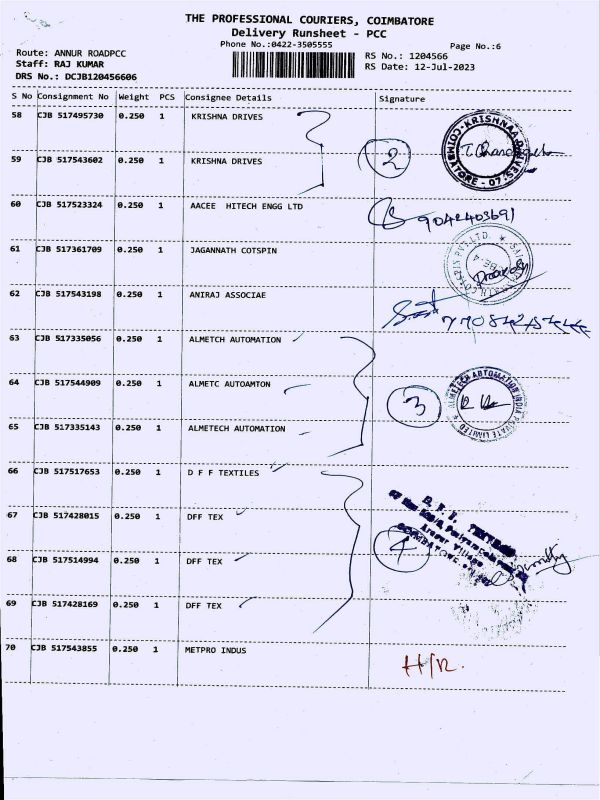 THE PROFESSIONAL COURIERS, COIMBATORE
Delivery Runsheet - PCC
Phone No.:0422-3505555
Page No.:6
Route: ANNUR ROADPCC
Staff: RAJ KUMAR
DRS No.: DCJB120456606
RS No.: 1204566
RS Date: 12-Jul-2023
S No Consignment No Weight PCS Consignee Details Signature
58 CJB 517495730 0.250 1 KRISHNA DRIVES
59 CJB 517543602 0.250 1 KRISHNA DRIVES
2
60 CJB 517523324 0.250 1 AACEE HITECH ENGG LTD
9042403691
61 CJB 517361709 0.250 1 JAGANNATH COTSPIN
62 CJB 517543198 0.250 1 ANIRAJ ASSOCIAE
63 CJB 517335056 0.250 1 ALMETCH AUTOMATION
64 CJB 517544909 0.250 1 ALMETC AUTOAMTON
3
65 CJB 517335143 0.250 1 ALMETECH AUTOMATION
66 CJB 517517653 0.250 1 D F F TEXTILES
67 CJB 517428015 0.250 1 DFF TEX
4
68 CJB 517514994 0.250 1 DFF TEX
69 CJB 517428169 0.250 1 DFF TEX
70 CJB 517543855 0.250 1 METPRO INDUS
H/R.